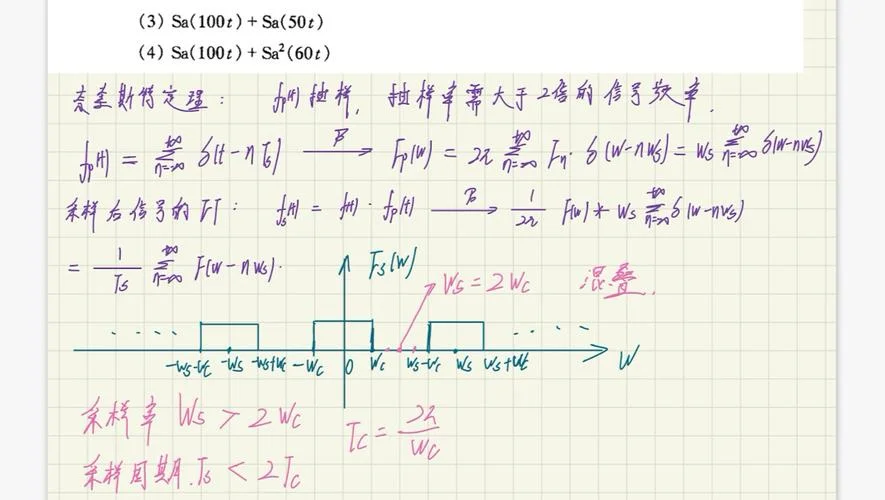 (3) Sa(100t) + Sa(50t)
(4) Sa(100t) + Sa²(60t)
奈奎斯特定理： fp(t) 抽样， 抽样率需大于2倍的信号频率.
fp(t) = ∑_{n=-∞}^{+∞} δ(t-nTs) —F→ Fp(w) = 2π ∑_{n=-∞}^{+∞} Fn · δ(w-nws) = ws ∑_{n=-∞}^{+∞} δ(w-nws)
采样后信号的FT： fs(t) = f(t) · fp(t) —F→ 1/2π F(w) * ws ∑_{n=-∞}^{+∞} δ(w-nws)
= 1/Ts ∑_{n=-∞}^{+∞} F(w-nws).
Fs(w)
ws = 2wc 混叠.
-ws-wc -ws -ws+wc -wc 0 wc ws-wc ws ws+wc w
采样率 ws > 2wc
Tc = 2π/wc
采样周期. Ts < 2Tc